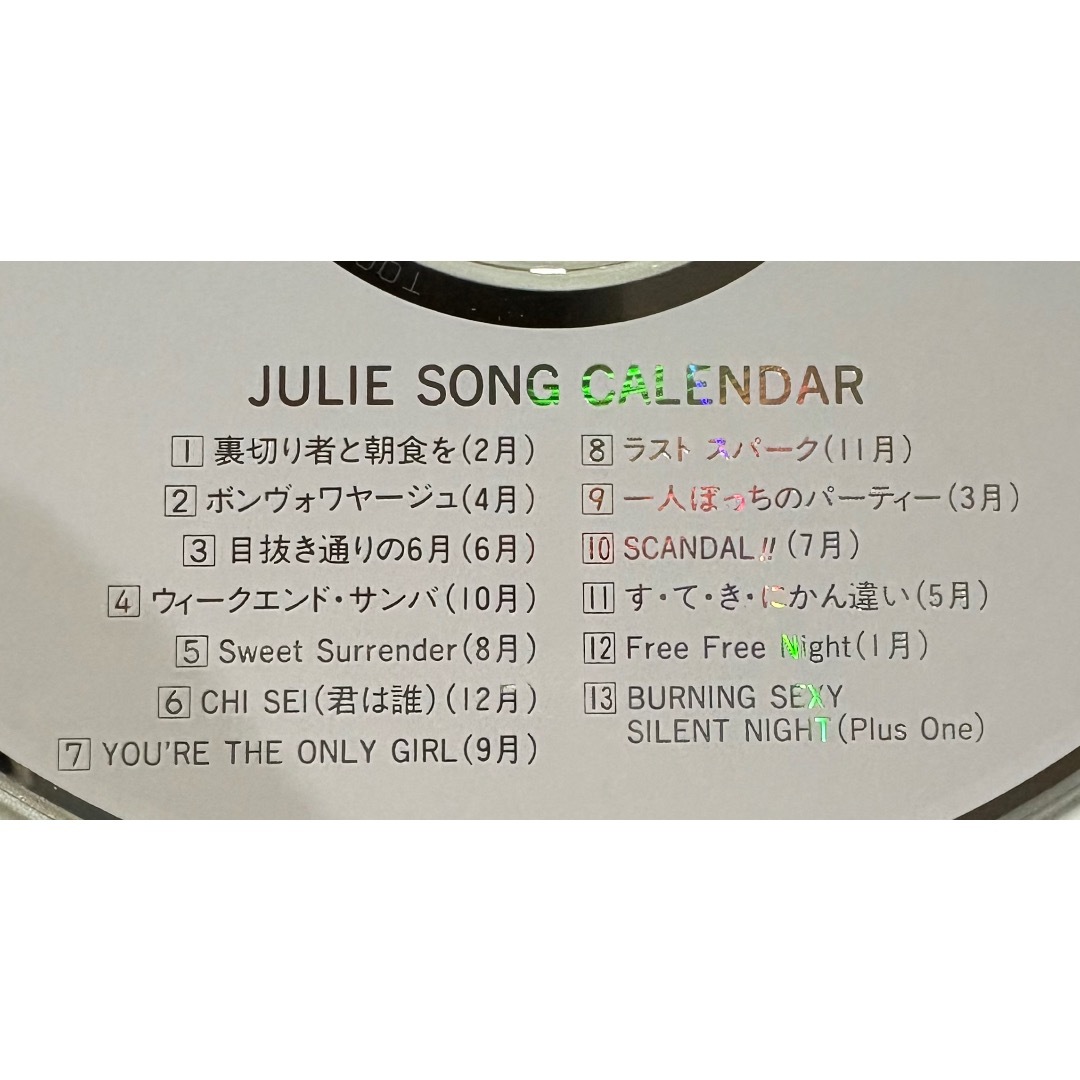 JULIE SONG CALENDAR
1 裏切り者と朝食を(2月)
2 ボンヴォワヤージュ(4月)
3 目抜き通りの6月(6月)
4 ウィークエンド・サンバ(10月)
5 Sweet Surrender(8月)
6 CHI SEI(君は誰)(12月)
7 YOU'RE THE ONLY GIRL(9月)
8 ラスト スパーク(11月)
9 一人ぼっちのパーティー(3月)
10 SCANDAL!!(7月)
11 す・て・き・にかん違い(5月)
12 Free Free Night(1月)
13 BURNING SEXY
SILENT NIGHT(Plus One)